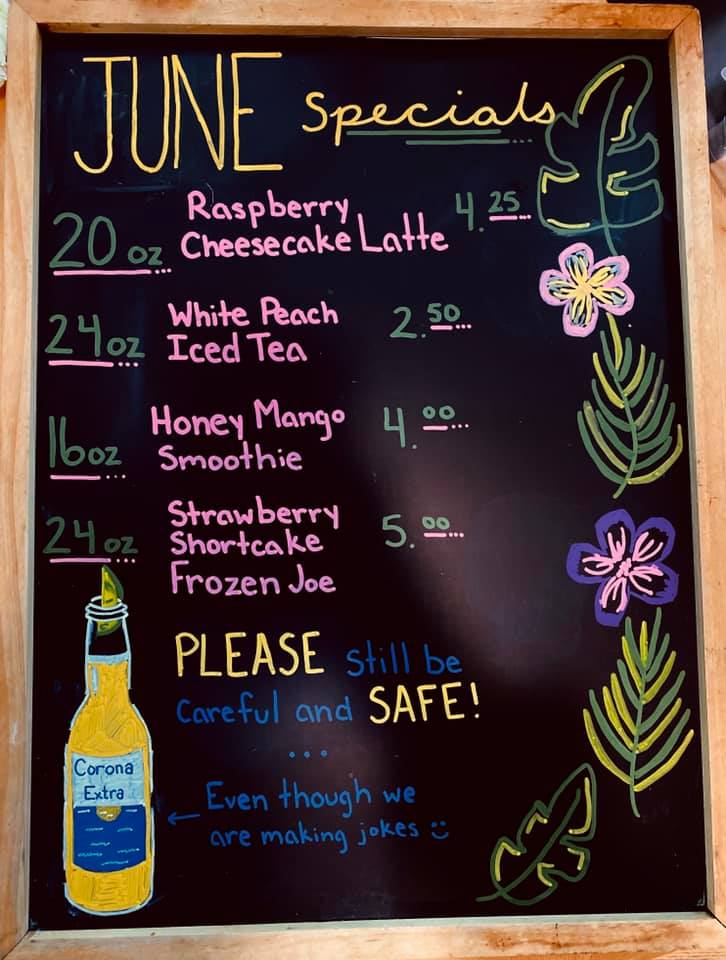 JUNE Specials
20 oz Raspberry Cheesecake Latte 4.25
24oz White Peach Iced Tea 2.50
16oz Honey Mango Smoothie 4.00
24oz Strawberry Shortcake Frozen Joe 5.00
PLEASE still be
careful and SAFE!
...
Corona
Extra
← Even though we
are making jokes :)